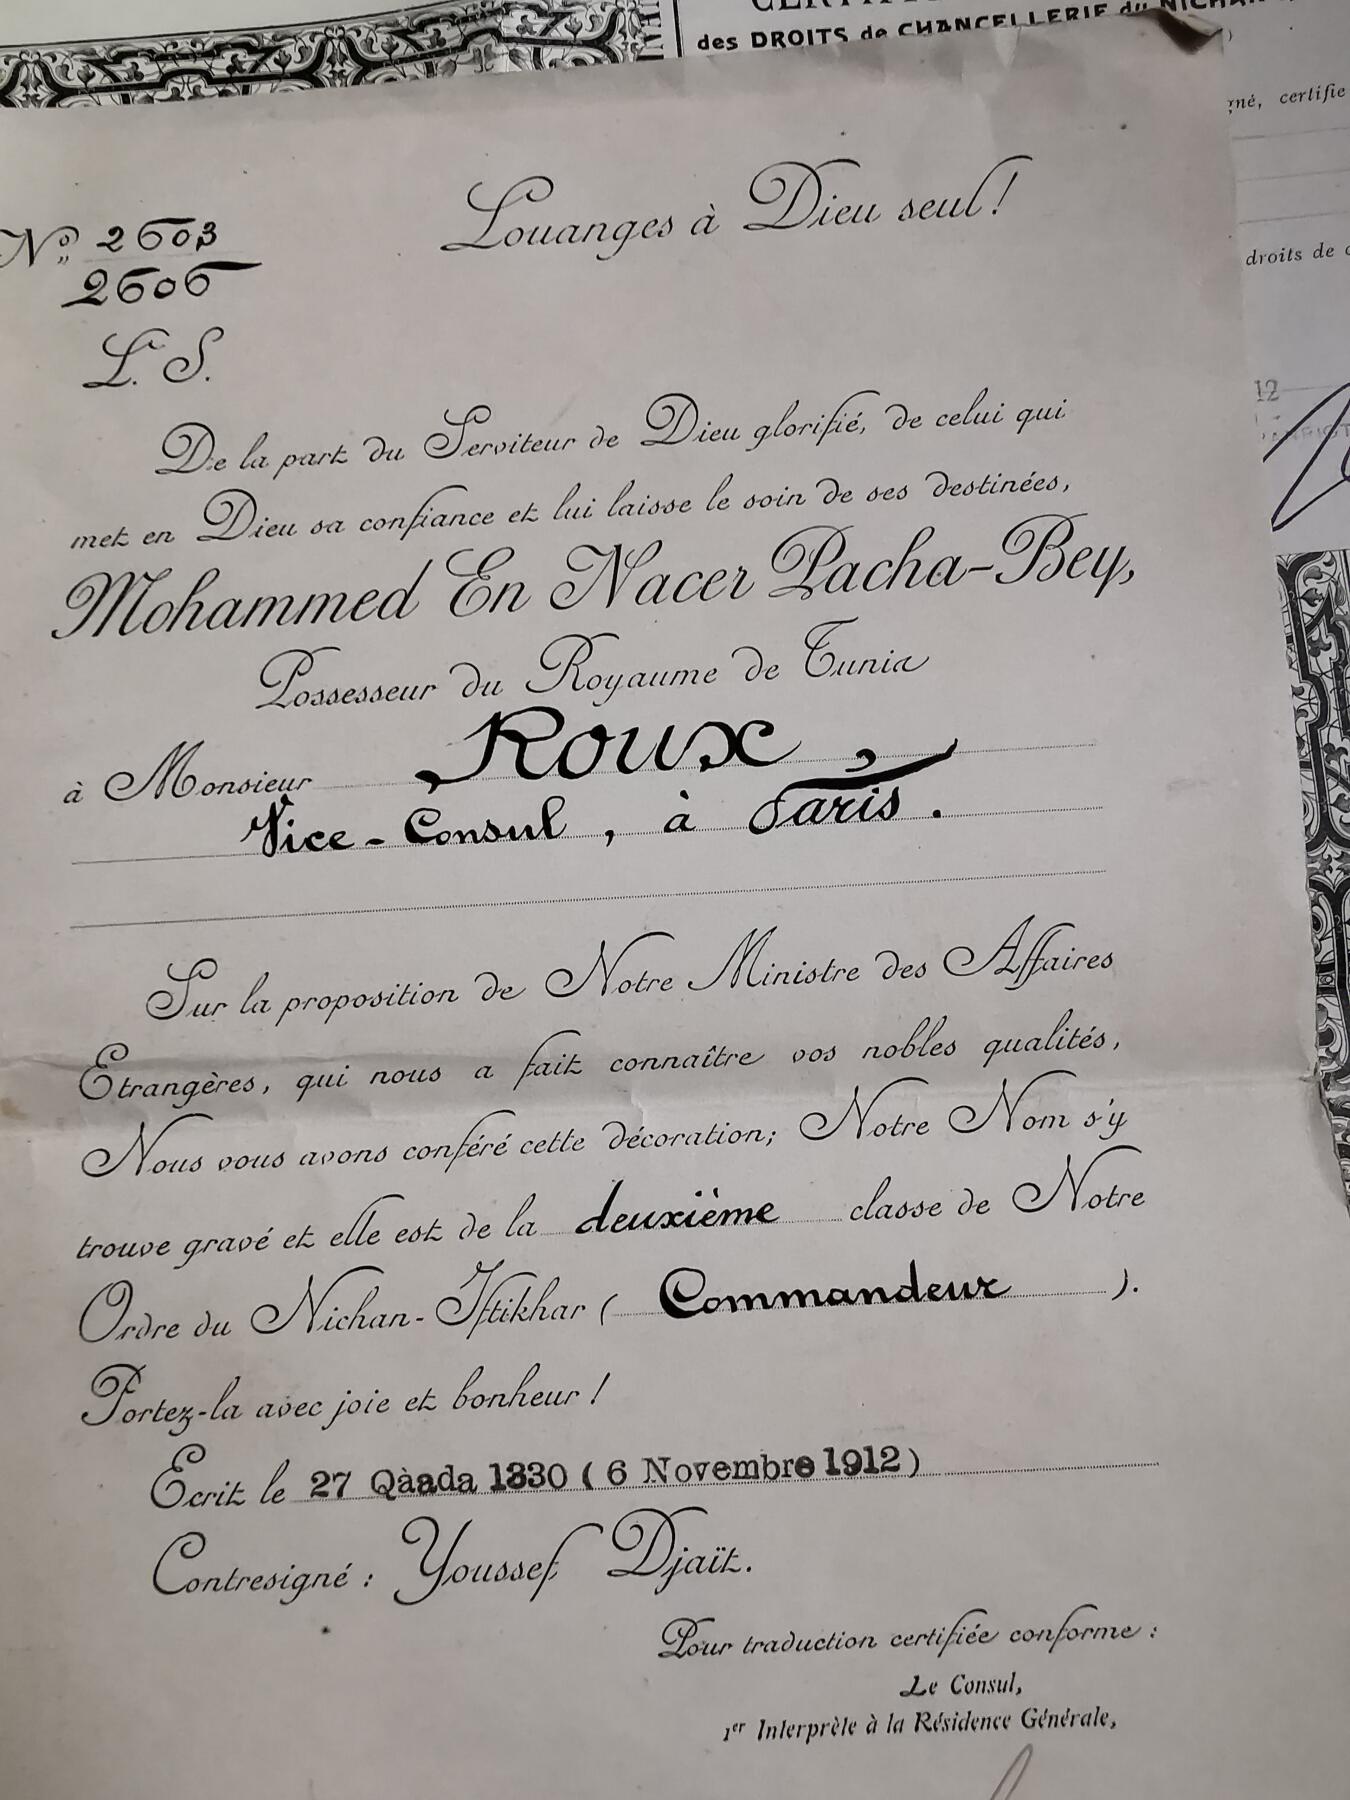 des DROITS de CHANCELLERIE du NICHAN
gné, certifie
droits de
12
Louanges à Dieu seul !
N° 2603
2606
L. S.
De la part du Serviteur de Dieu glorifié, de celui qui
met en Dieu sa confiance et lui laisse le soin de ses destinées,
Mohammed En Nacer Pacha-Bey,
Possesseur du Royaume de Tunis
à Monsieur Roux,
Vice-Consul, à Paris.
Sur la proposition de Notre Ministre des Affaires
Etrangères, qui nous a fait connaître vos nobles qualités,
Nous vous avons conféré cette décoration; Notre Nom s'y
trouve gravé et elle est de la deuxième classe de Notre
Ordre du Nichan-Iftikhar ( Commandeur ).
Portez-la avec joie et bonheur !
Ecrit le 27 Qàada 1330 ( 6 Novembre 1912 )
Contresigné : Youssef Djaït.
Pour traduction certifiée conforme :
Le Consul,
1er Interprète à la Résidence Générale,